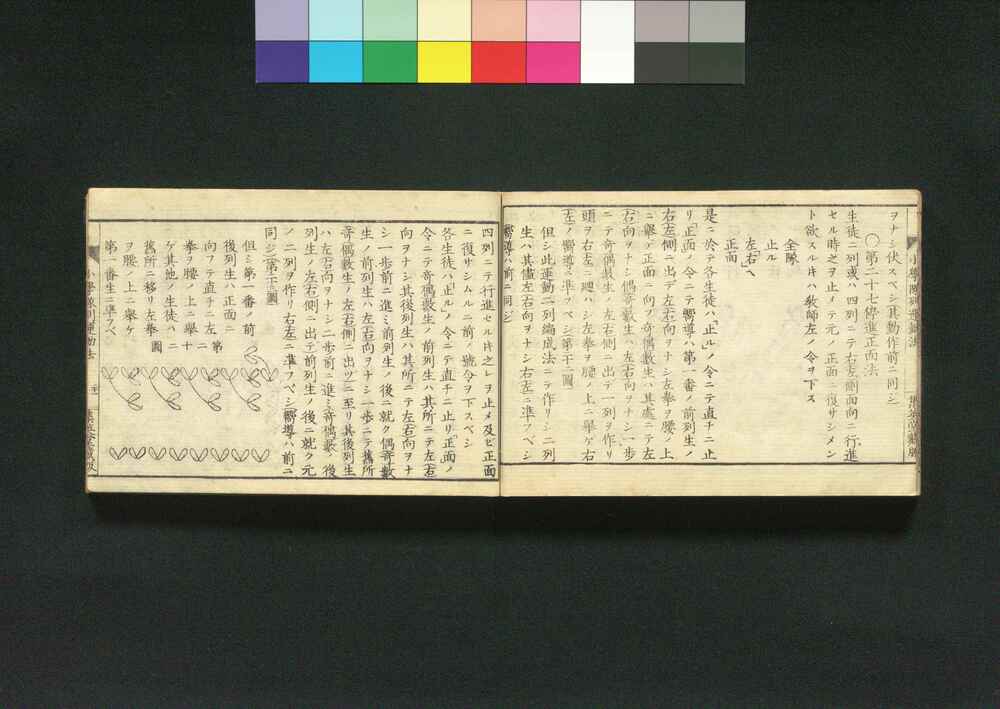 ヲナシ伏スベシ其動作前ニ同シ
〇第二十七停進正面法
生徒二列或ハ四列ニテ右左側面向ニ行進
セル時之ヲ止メテ元ノ正面ニ復サシメン
ト欲スルトキハ教師左ノ令ヲ下ス
全隊
止ル
左右ヘ
正面
是ニ於テ各生徒ハ「止ル」ノ令ニテ直チニ止
リ「正面」ノ令ニテ嚮導ハ第一番ノ前列生ノ
右左側ニ出デ左右向ヲナシ左拳ヲ腰ノ上
ニ擧ゲ正面ニ向フ奇偶數生ハ其處ニテ左
右向ヲナシ偶奇數生ハ左右向ヲナシ一步
ニテ奇偶數生ノ左右側ニ出テ一列ヲ作リ
頭ヲ右左ニ廻ハシ左拳ヲ腰ノ上ニ擧ゲ右
左ノ嚮導ニ準フベシ第十二圖
但シ此運動二列編成法ニテ作リシ二列
生ハ其儘左右向ヲナシ右左ニ準フベシ
嚮導ハ前ニ同ジ
四列ニテ行進セルトキ之レヲ止メ及ビ正面
ニ復サシムルニ前ノ號令ヲ下スベシ
各生徒ハ「止ル」ノ令ニテ直チニ止リ「正面」ノ
令ニテ奇偶數生ノ前列生ハ其所ニテ左右
向ヲナシ其後列生ハ其所ニテ左右向ヲナ
シ一步前ニ進ミ前列生ノ後ニ就ク偶奇數
生ノ前列生ハ左右向ヲナシ一步ニテ舊所
奇偶數生ノ左右側ニ出ヅニ至リ其後列生
ハ左右向ヲナシ二步前ニ進ミ奇偶數ノ後
列生ノ左右側ニ出テ前列生ノ後ニ就ク元
ノ二列ヲ作リ右左ニ準フベシ嚮導ハ前ニ
同シ第十二圖
但シ第一番ノ前
後列生ハ正面ニ
向フテ直チニ左
拳ヲ腰ノ上ニ擧
ゲ其他ノ生徒ハ
舊所ニ移リ左拳
ヲ腰ノ上ニ擧ケ
第一番生ニ準フベ
第
二
十
二
圖